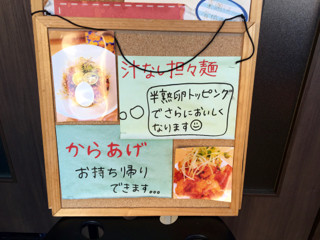 汁なし担々麺
半熟卵トッピング
でさらにおいしく
なります☺
からあげ
お持ち帰り
できます...